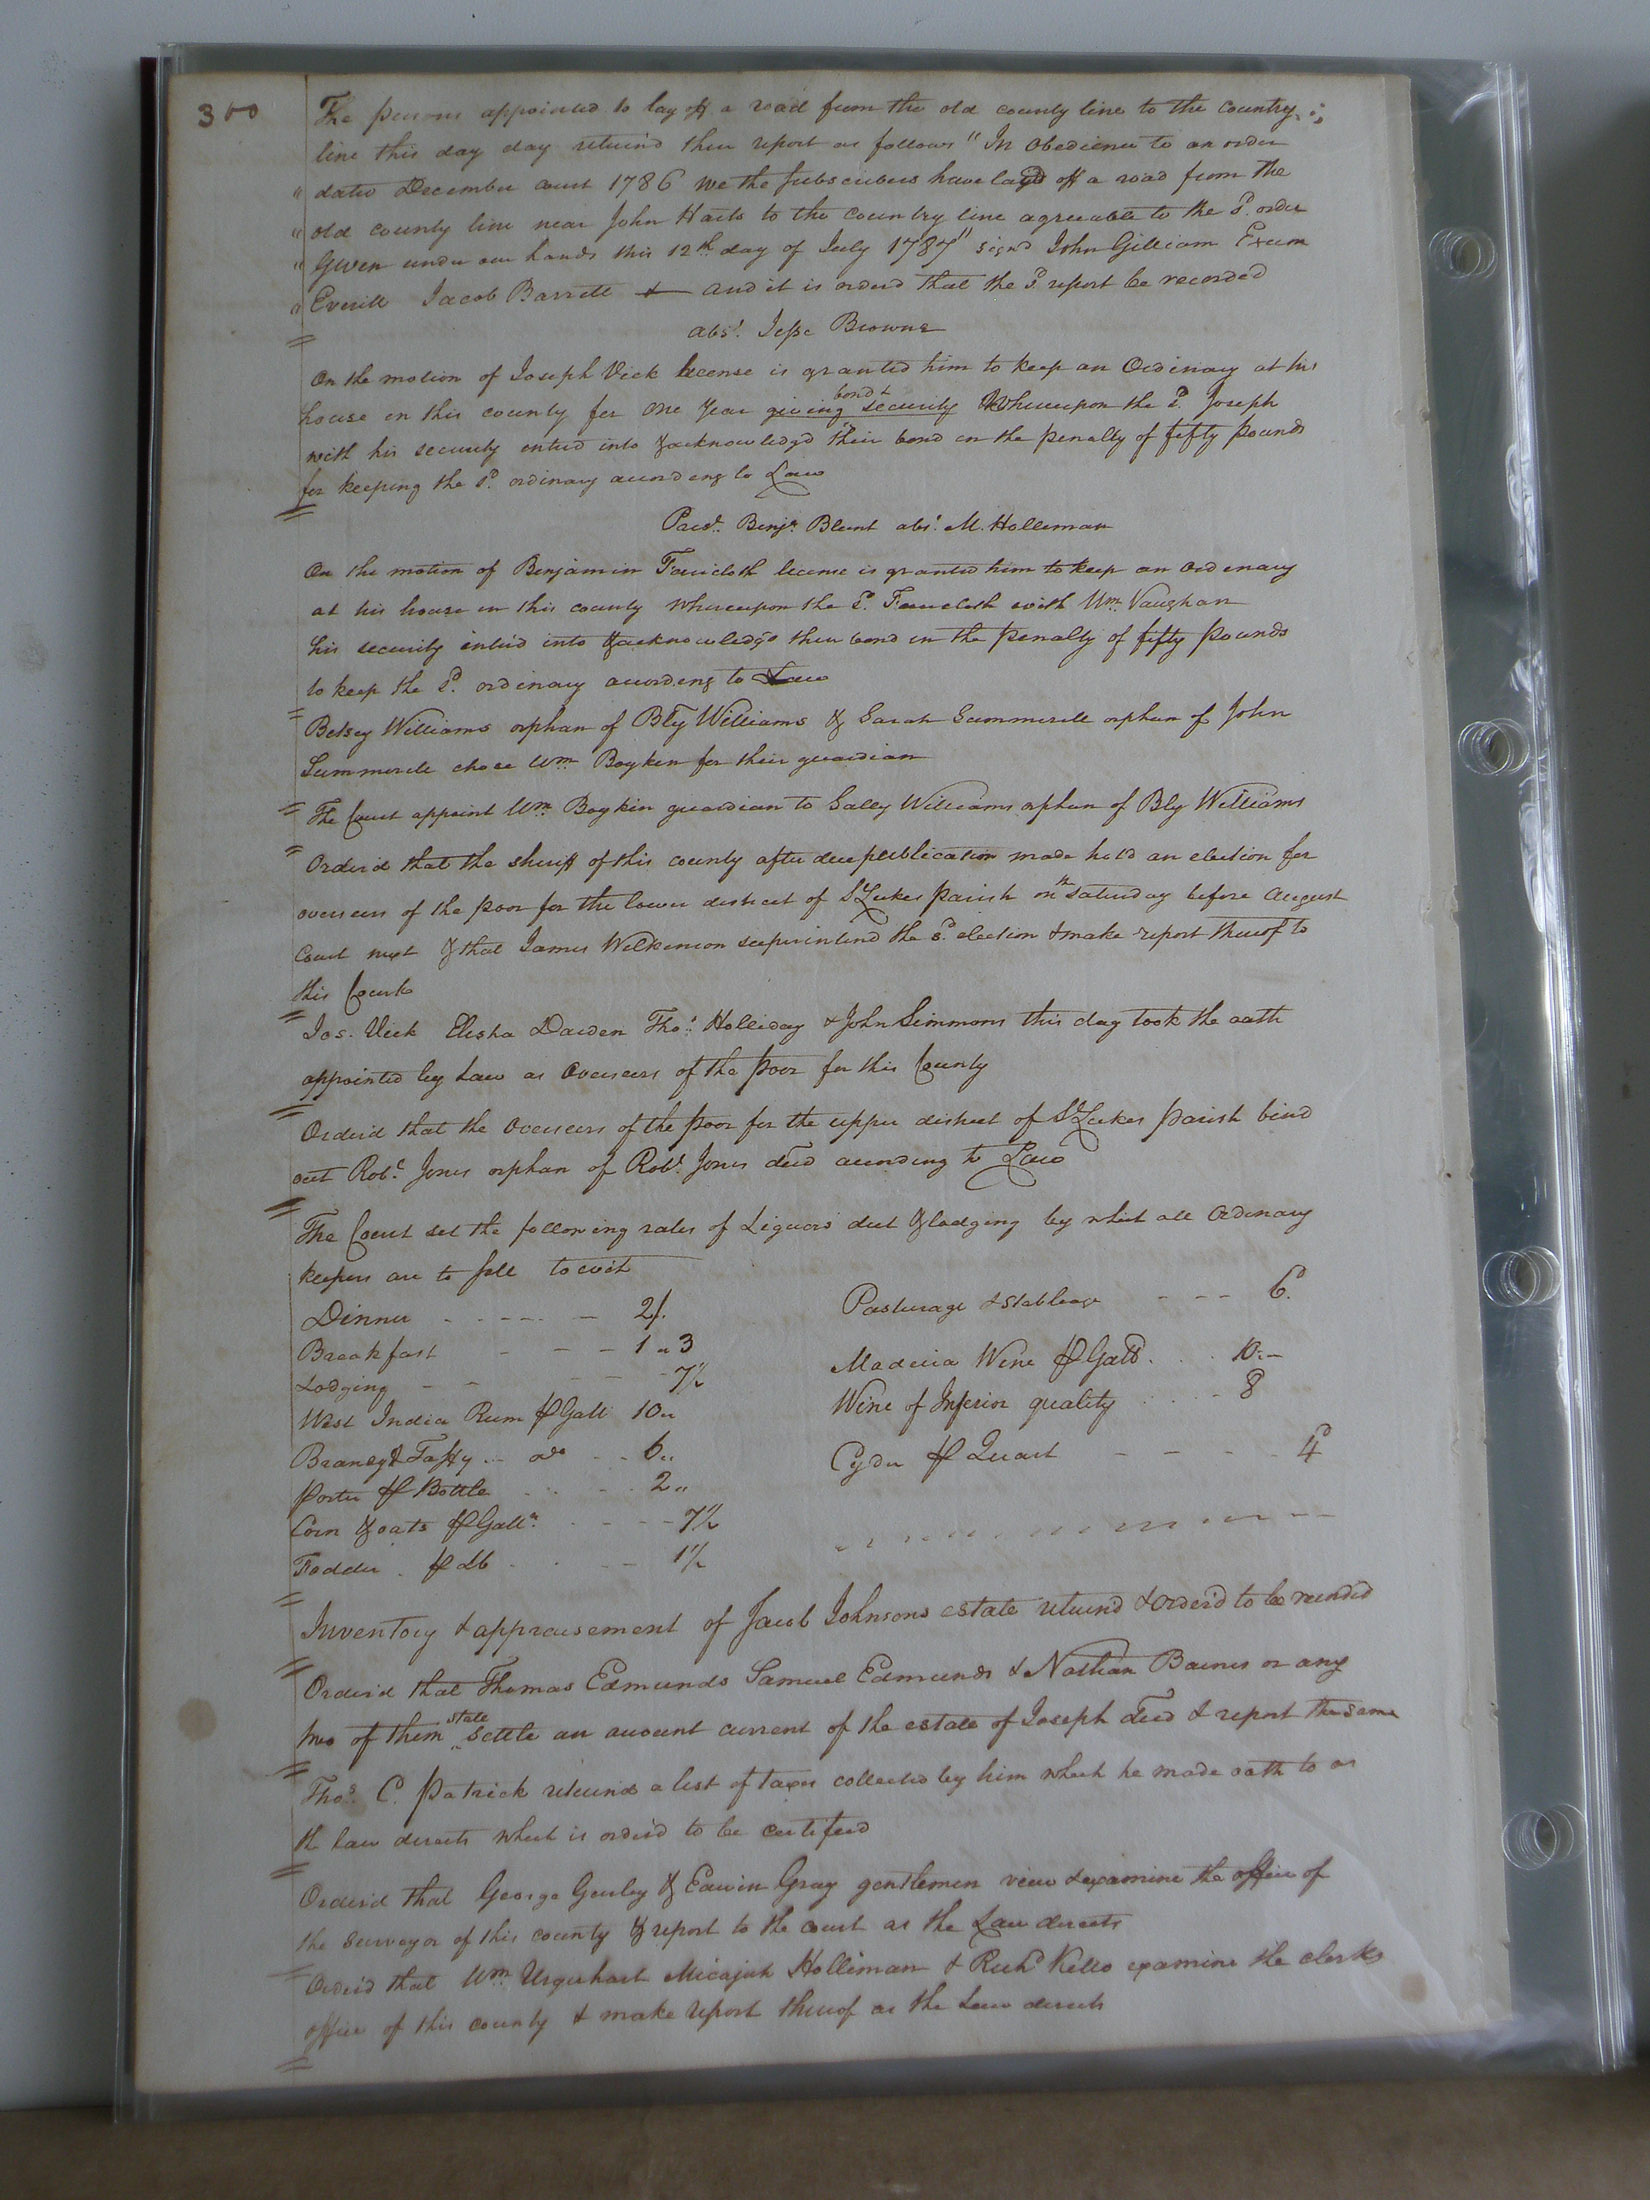 300
The persons appointed to lay off a road from the old county line to the Country
line this day day returnd their report as follows "In Obedience to an order
" dated December court 1786 we the Subscribers have layd off a road from the
" old county line near John Harts to the country line agreeable to the sd. order
" Given under our hands this 12th day of July 1787" signd John Gilliam Exum
" Everitt Jacob Barrett & and it is orderd that the sd report be recorded
abst. Jesse Browne
On the motion of Joseph Vick license is granted him to keep an Ordinary at his
house in this county for one Year giving bond & security Whereupon the sd. Joseph
with his security entred into & acknowledgd their bond in the penalty of fifty pounds
for keeping the sd. ordinary according to Law
Presd. Benja. Blunt abst. M. Holleman
On the motion of Benjamin Faircloth license is granted him to keep an Ordenary
at his house in this county whereupon the sd. Faircloth with Wm. Vaughan
his security entred into & acknowledgd their bond in the penalty of fifty pounds
to keep the sd. ordinary according to Law
Betsey Williams orphan of Bly Williams & Sarah Summerell orphan of John
Summerell chose Wm Boykin for their guardian
The Court appoint Wm. Boykin guardian to Salley Williams orphan of Bly Williams
Orderd that the sheriff of this county after due publication made hold an election for
overseers of the poor for the lower district of St Lukes parish on th Saturday before August
Court next & that James Wilkinson superintend the sd. election & make report thereof to
this Court
Jos. Vick Elisha Darden Thos. Holliday & John Simmons this day took the oath
appointed by Law as Overseers of the poor for this County
Orderd that the Overseers of the poor for the upper district of St Lukes parish bind
out Robt. Jones orphan of Robt. Jones decd according to Law
The Court set the following rates of Liquors diet & lodging by which all Ordenary
keepers are to sell to wit
Dinner - - - - - 2/.
Pasturage & Stablage - - - 6.
Breakfast - - - 1 " 3
Lodging - - - - 7½
Madeira Wine ⅌ Galln. . . 10.-
West India Rum ⅌ Gall 10"
Wine of Inferior quality . . - 8
Brandy & Taffy ... do - - 6"
Cyder ⅌ Quart - - - - 4d
Porter ⅌ Bottle . . . 2"
Corn & oats ⅌ Galln. - - - - 7½
Fodder . ⅌ lb - . - - 1½
Inventory & appraisement of Jacob Johnsons estate returnd & orderd to be recorded
Orderd that Thomas Edmunds Samuel Edmunds & Nathan Barnes or any
two of them state settle an account current of the estate of Joseph decd & report the same
Thos. C. Patrick returnd a list of taxes collected by him which he made oath to as
th law directs which is orderd to be certifeed
Orderd that George Gurley & Edwin Gray gentlemen view & examine the office of
the Surveyor of this county & report to the court as the Law directs
Orderd that Wm. Urquhart Micajah Holliman & Richd Kello examine the clerks
office of this county & make report thereof as the Law directs